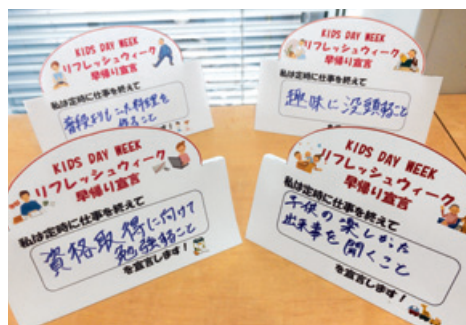 KIDS DAY WEEK
リフレッシュウィーク
早帰り宣言
私は定時に仕事を終えて
普段よりもこった料理を
作ること
KIDS DAY WEEK
リフレッシュウィーク
早帰り宣言
私は定時に仕事を終えて
趣味に没頭すること
KIDS DAY WEEK
リフレッシュウィーク
早帰り宣言
私は定時に仕事を終えて
資格取得に向けて
勉強すること
を宣言します！
KIDS DAY WEEK
リフレッシュウィーク
早帰り宣言
私は定時に仕事を終えて
子供の楽しかった
出来事を聞くこと
を宣言します！